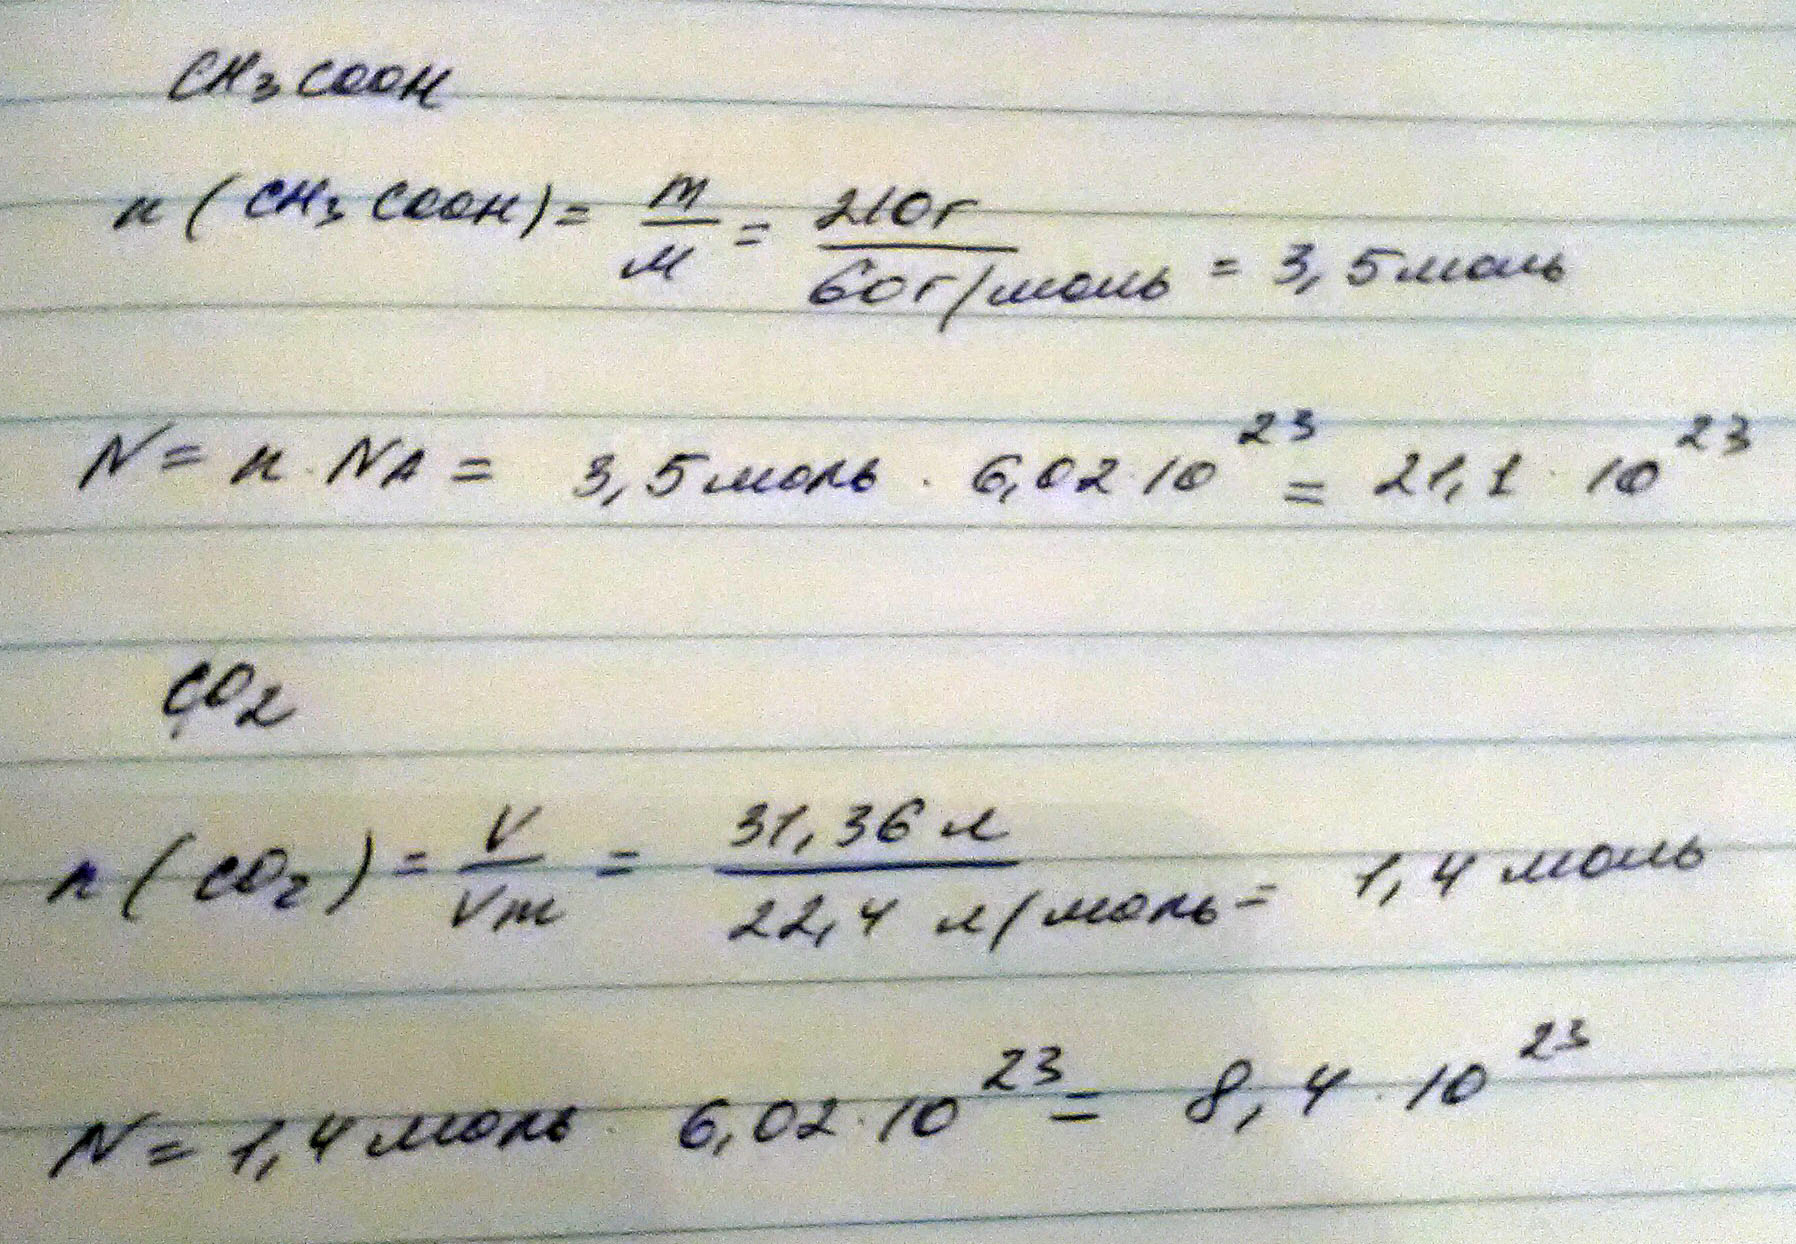 CH₃COOH
n (CH₃COOH) = m/M = 210г/60г/моль = 3,5 моль
N = n · NA = 3,5 моль · 6,02 · 10²³ = 21,1 · 10²³
CO₂
n (CO₂) = V/Vm = 31,36 л/22,4 л/моль = 1,4 моль
N = 1,4 моль · 6,02 · 10²³ = 8,4 · 10²³